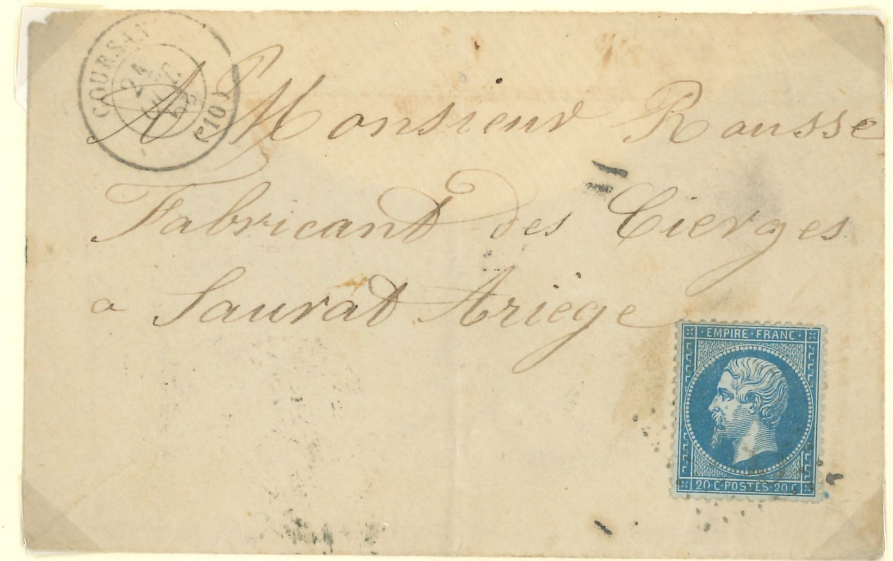 COURSAN
24
(10)
A Monsieur Rousse
Fabricant des Cierges
a Saurat Ariége
EMPIRE FRANC
20 C POSTES 20 C